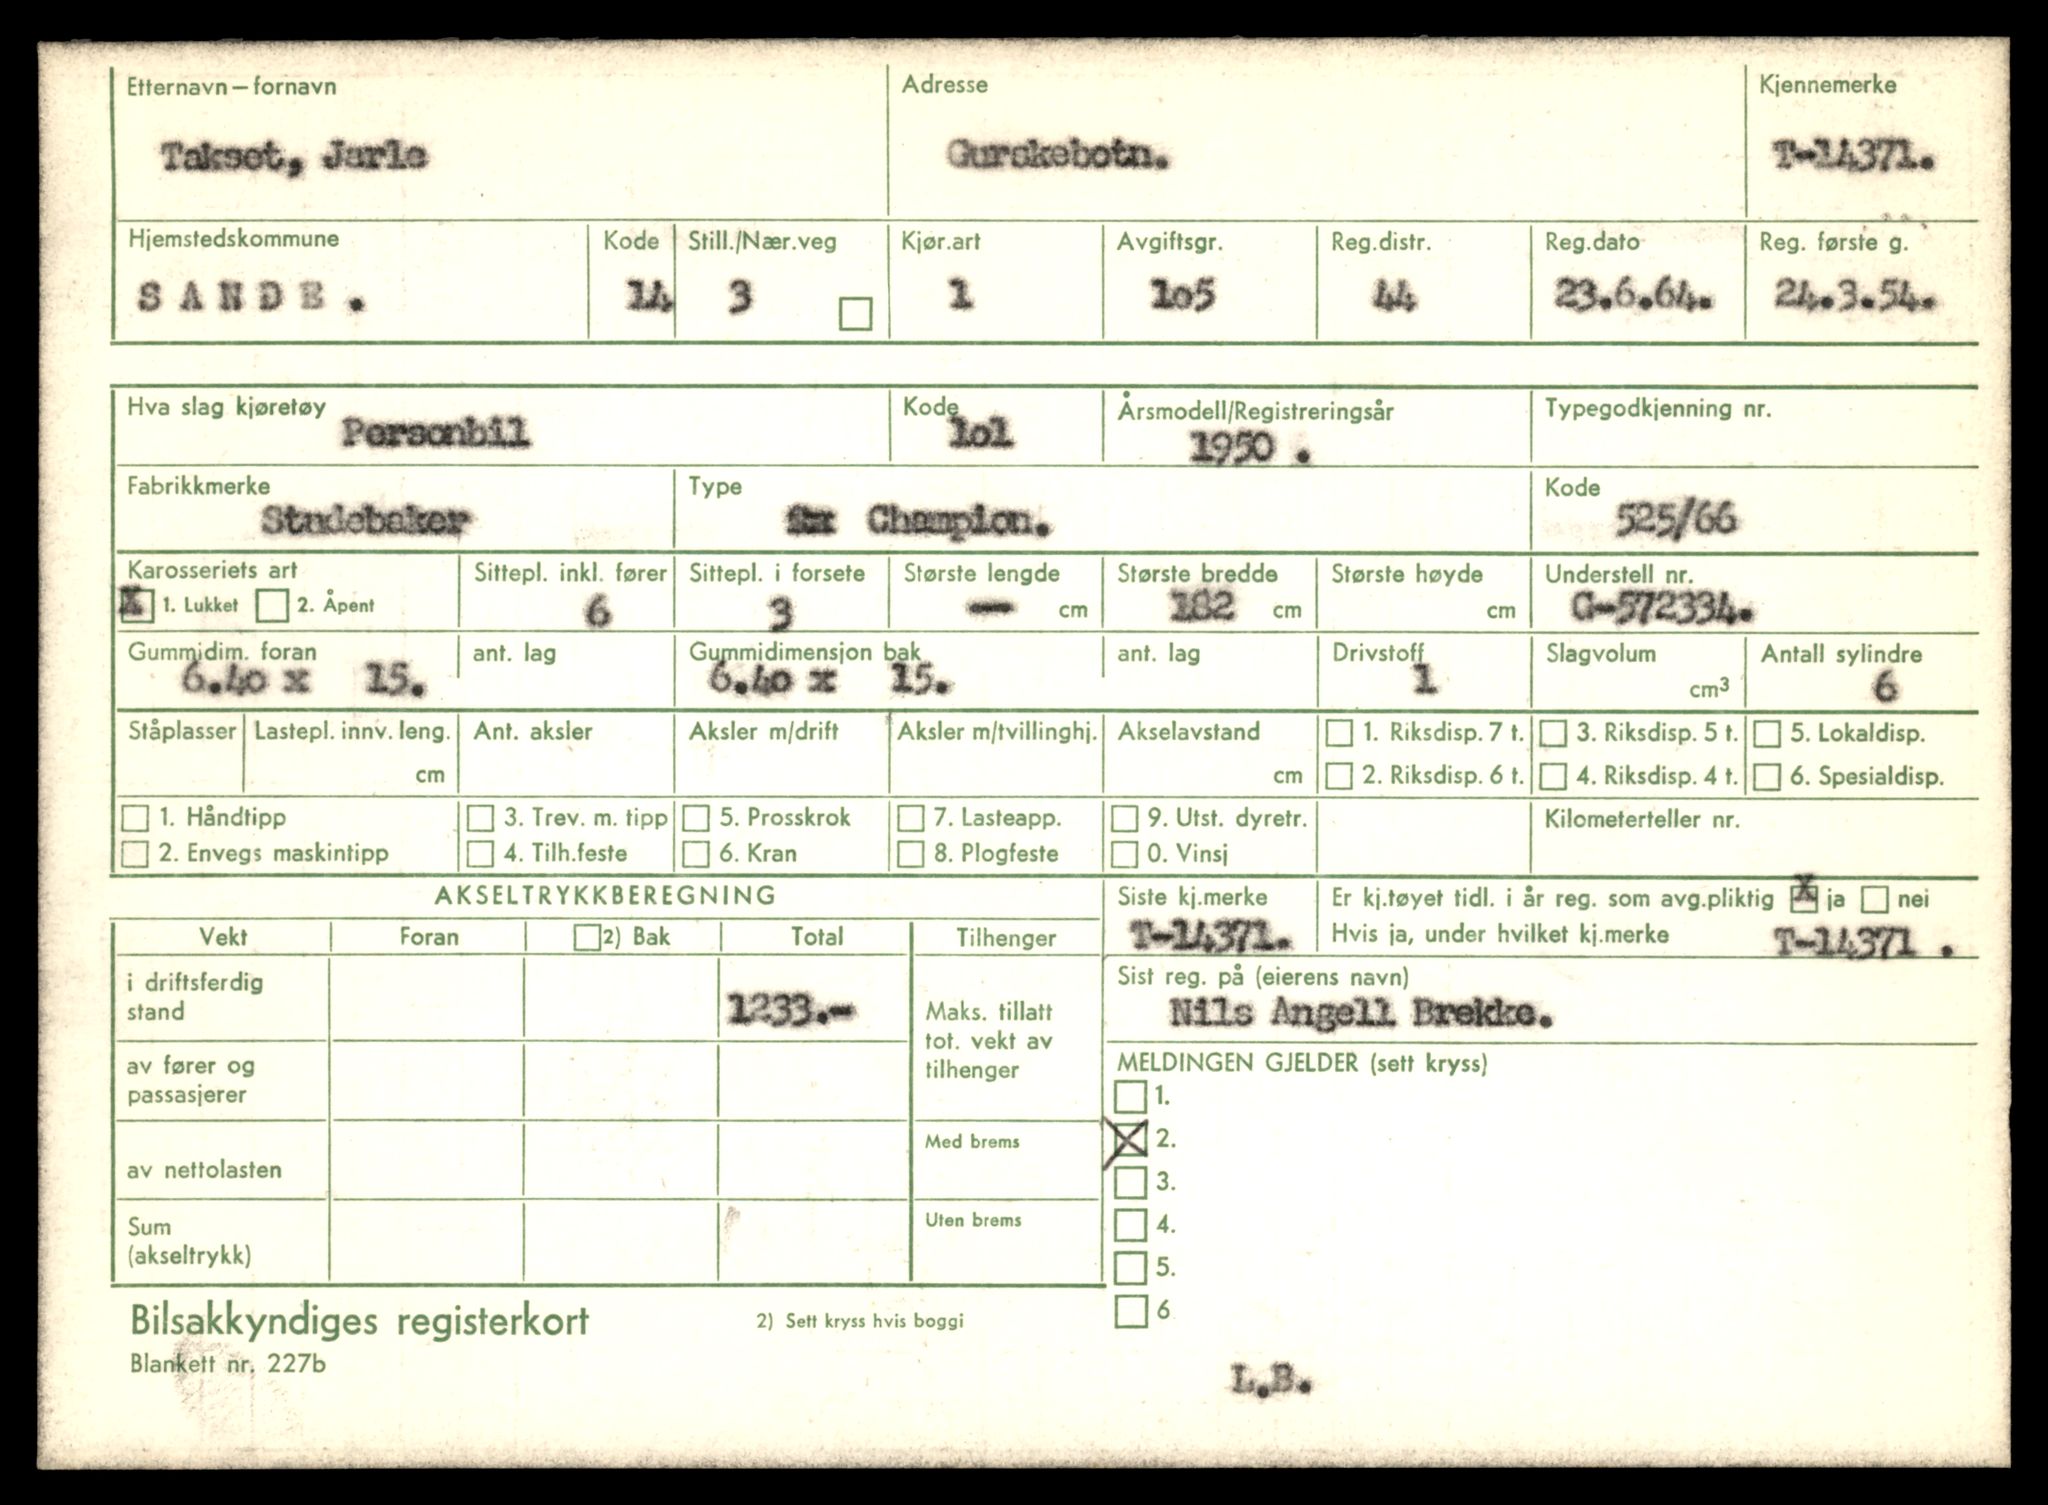 Etternavn – fornavn Adresse Kjennemerke
Takset, Jarle Gurskebotn. T-14371.
Hjemstedskommune Kode Still./Nær.veg Kjør.art Avgiftsgr. Reg.distr. Reg.dato Reg. første g.
SANDE. 14 3 1 1o5 44 23.6.64. 24.3.54.
Hva slag kjøretøy Kode Årsmodell/Registreringsår Typegodkjenning nr.
Personbil 1o1 1950 .
Fabrikkmerke Type Kode
Studebaker Champion. 525/66
Karosseriets art Sittepl. inkl. fører Sittepl. i forsete Største lengde Største bredde Største høyde Understell nr.
X 1. Lukket 2. Åpent 6 3 — cm 182 cm cm G-572334.
Gummidim. foran ant. lag Gummidimensjon bak ant. lag Drivstoff Slagvolum Antall sylindre
6.40 x 15. 6.40 x 15. 1 cm³ 6
Ståplasser Lastepl. innv. leng. Ant. aksler Aksler m/drift Aksler m/tvillinghj. Akselavstand 1. Riksdisp. 7 t. 3. Riksdisp. 5 t. 5. Lokaldisp.
cm cm 2. Riksdisp. 6 t. 4. Riksdisp. 4 t. 6. Spesialdisp.
1. Håndtipp 3. Trev. m. tipp 5. Prosskrok 7. Lasteapp. 9. Utst. dyretr. Kilometerteller nr.
2. Envegs maskintipp 4. Tilh.feste 6. Kran 8. Plogfeste 0. Vinsj
AKSELTRYKKBEREGNING Siste kj.merke Er kj.tøyet tidl. i år reg. som avg.pliktig X ja nei
Vekt Foran 2) Bak Total Tilhenger T-14371. Hvis ja, under hvilket kj.merke T-14371 .
i driftsferdig stand 1233.- Sist reg. på (eierens navn)
Nils Angell Brekke.
Maks. tillatt tot. vekt av tilhenger
av fører og passasjerer MELDINGEN GJELDER (sett kryss)
1.
Med brems X 2.
av nettolasten 3.
Uten brems 4.
Sum (akseltrykk) 5.
6
Bilsakkyndiges registerkort 2) Sett kryss hvis boggi
Blankett nr. 227b
L.B.